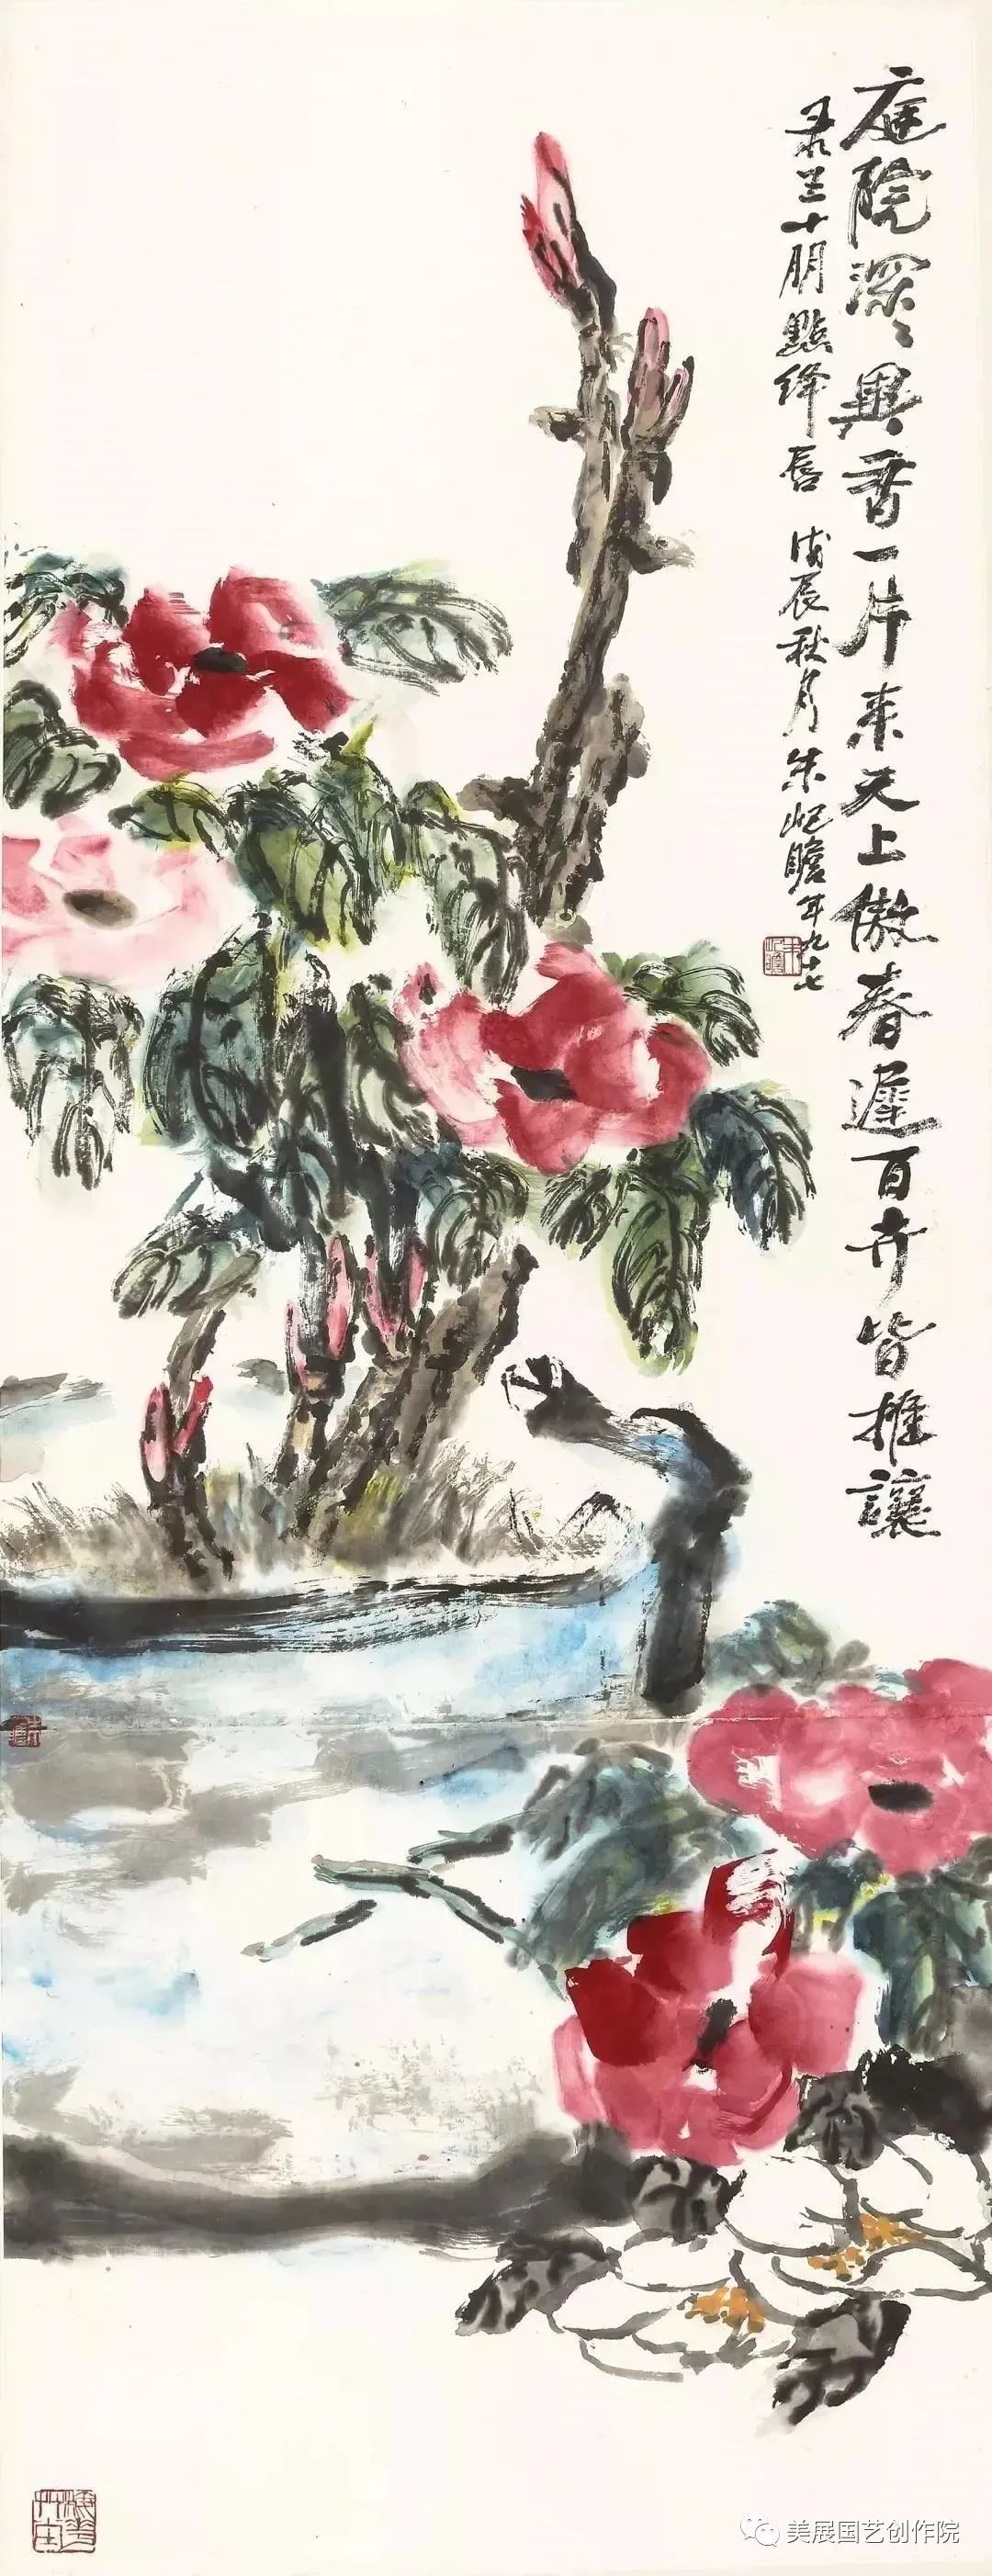 庭院深〻異香一片来天上傲春遲百卉皆推讓
录王十朋點绛唇 戊辰秋月朱屺瞻年九十七
美展国艺创作院